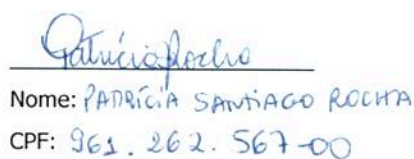 Patrícia Rocha
Nome: PATRÍCIA SANTIAGO ROCHA
CPF: 961.262.567-00